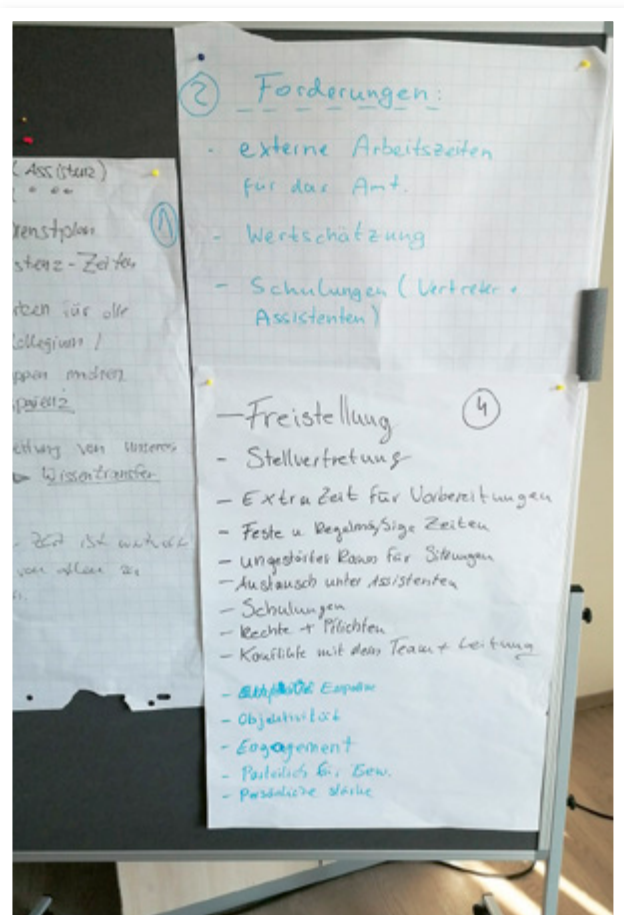 (Assistenz)
①
stenz-Zeiten
für alle
Kollegium /
von unseren
Wissentransfer
- Zeit ist
von allen
② Forderungen:
- externe Arbeitszeiten
für das Amt.
- Wertschätzung
- Schulungen (Vertreter +
Assistenten)
④
- Freistellung
- Stellvertretung
- Extra Zeit für Vorbereitungen
- Feste u Regelmäßige Zeiten
- ungestörter Raum für Sitzungen
- Austausch unter Assistenten
- Schulungen
- Rechte + Pflichten
- Konflikte mit dem Team + Leitung
- Objektivität
- Engagement
- Parteilich für Bew.
- Persönliche stärke